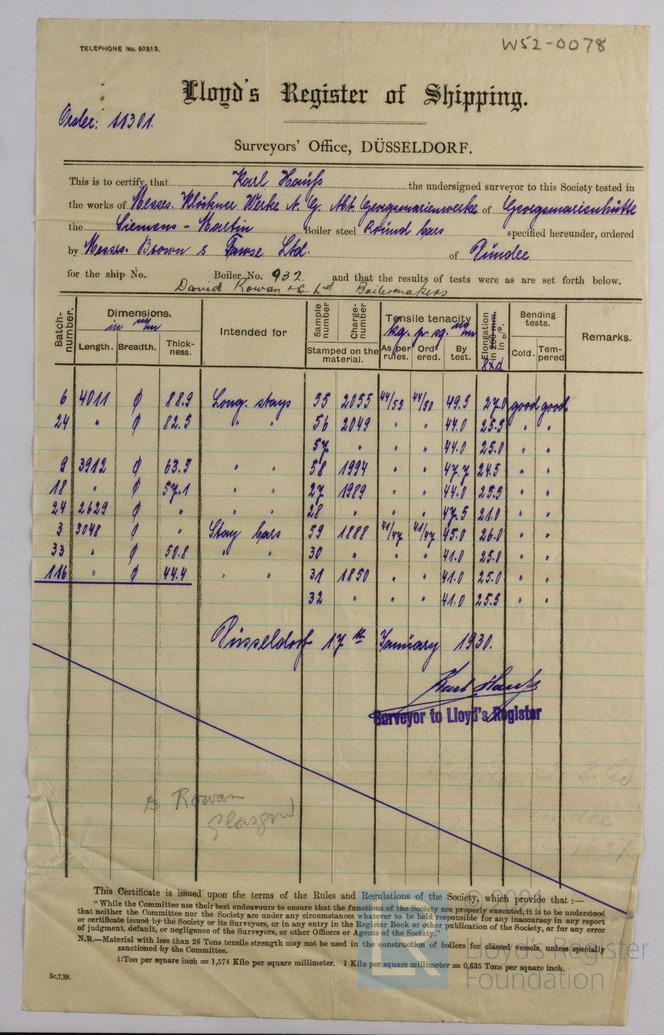 TELEPHONE No. 80313.
W52-0078
Lloyd's Register of Shipping.
Order: 11301.
Surveyors' Office, DÜSSELDORF.
This is to certify, that Karl Hauss the undersigned surveyor to this Society tested in
the works of Messrs. Klöckner Werke A. G. Abt. Georgsmarienwerke of Georgsmarienhütte
the Siemens - Martin Boiler steel Round bars specified hereunder, ordered
by Messrs. Brown & Tawse Ltd. of Dundee
for the ship No. Boiler No. 932 and that the results of tests were as are set forth below.
David Rowan & Co Ltd Boilermakers
Batch-number. Dimensions. in mm Length. Breadth. Thick-ness. Intended for Sample number Charge-number Stamped on the material. Tensile tenacity Kg. pr sq. mm As per rules. Ord-ered. By test. Elongation in 200 mm in o/o. 8xd Bending tests. Cold. Tem-pered Remarks.
6 4011 φ 88.9 Long. stays 55 2055 44/53 44/50 49.5 27.0 good good
24 " φ 82.5 " " 56 2049 " " 44.0 25.5 " "
57 " " " 44.0 25.0 " "
9 3912 φ 63.5 " " 58 1994 " " 47.7 24.5 " "
18 " φ 57.1 " " 27 1989 " " 44.0 25.5 " "
24 2629 φ " " " 28 " " " 47.5 21.0 " "
3 3048 φ " Stay bars 59 1888 41/47 41/47 45.0 26.0 " "
33 " φ 50.8 " " 30 " " " 41.0 25.0 " "
116 " φ 44.4 " " 31 1850 " " 41.0 25.0 " "
32 " " " 41.0 25.5 " "
Düsseldorf 17th January 1930.
Karl Hauss
Surveyor to Lloyd's Register
D. Rowan
Glasgow
Dundee
This Certificate is issued upon the terms of the Rules and Regulations of the Society, which provide that :—
"While the Committee use their best endeavours to ensure that the functions of the Society are properly executed, it is to be understood
that neither the Committee nor the Society are under any circumstances whatever to be held responsible for any inaccuracy in any report
or certificate issued by the Society or its Surveyors, or in any entry in the Register Book or other publication of the Society, or for any error
of judgment, default, or negligence of the Surveyors, or other Officers or Agents of the Society."
N.B.—Material with less than 26 Tons tensile strength may not be used in the construction of boilers for classed vessels, unless specially
sanctioned by the Committee.
1 Ton per square inch = 1,574 Kilo per square millimeter. 1 Kilo per square millimeter = 0,635 Tons per square inch.
5c,7,29.
© 2021
Lloyd's Register
Foundation